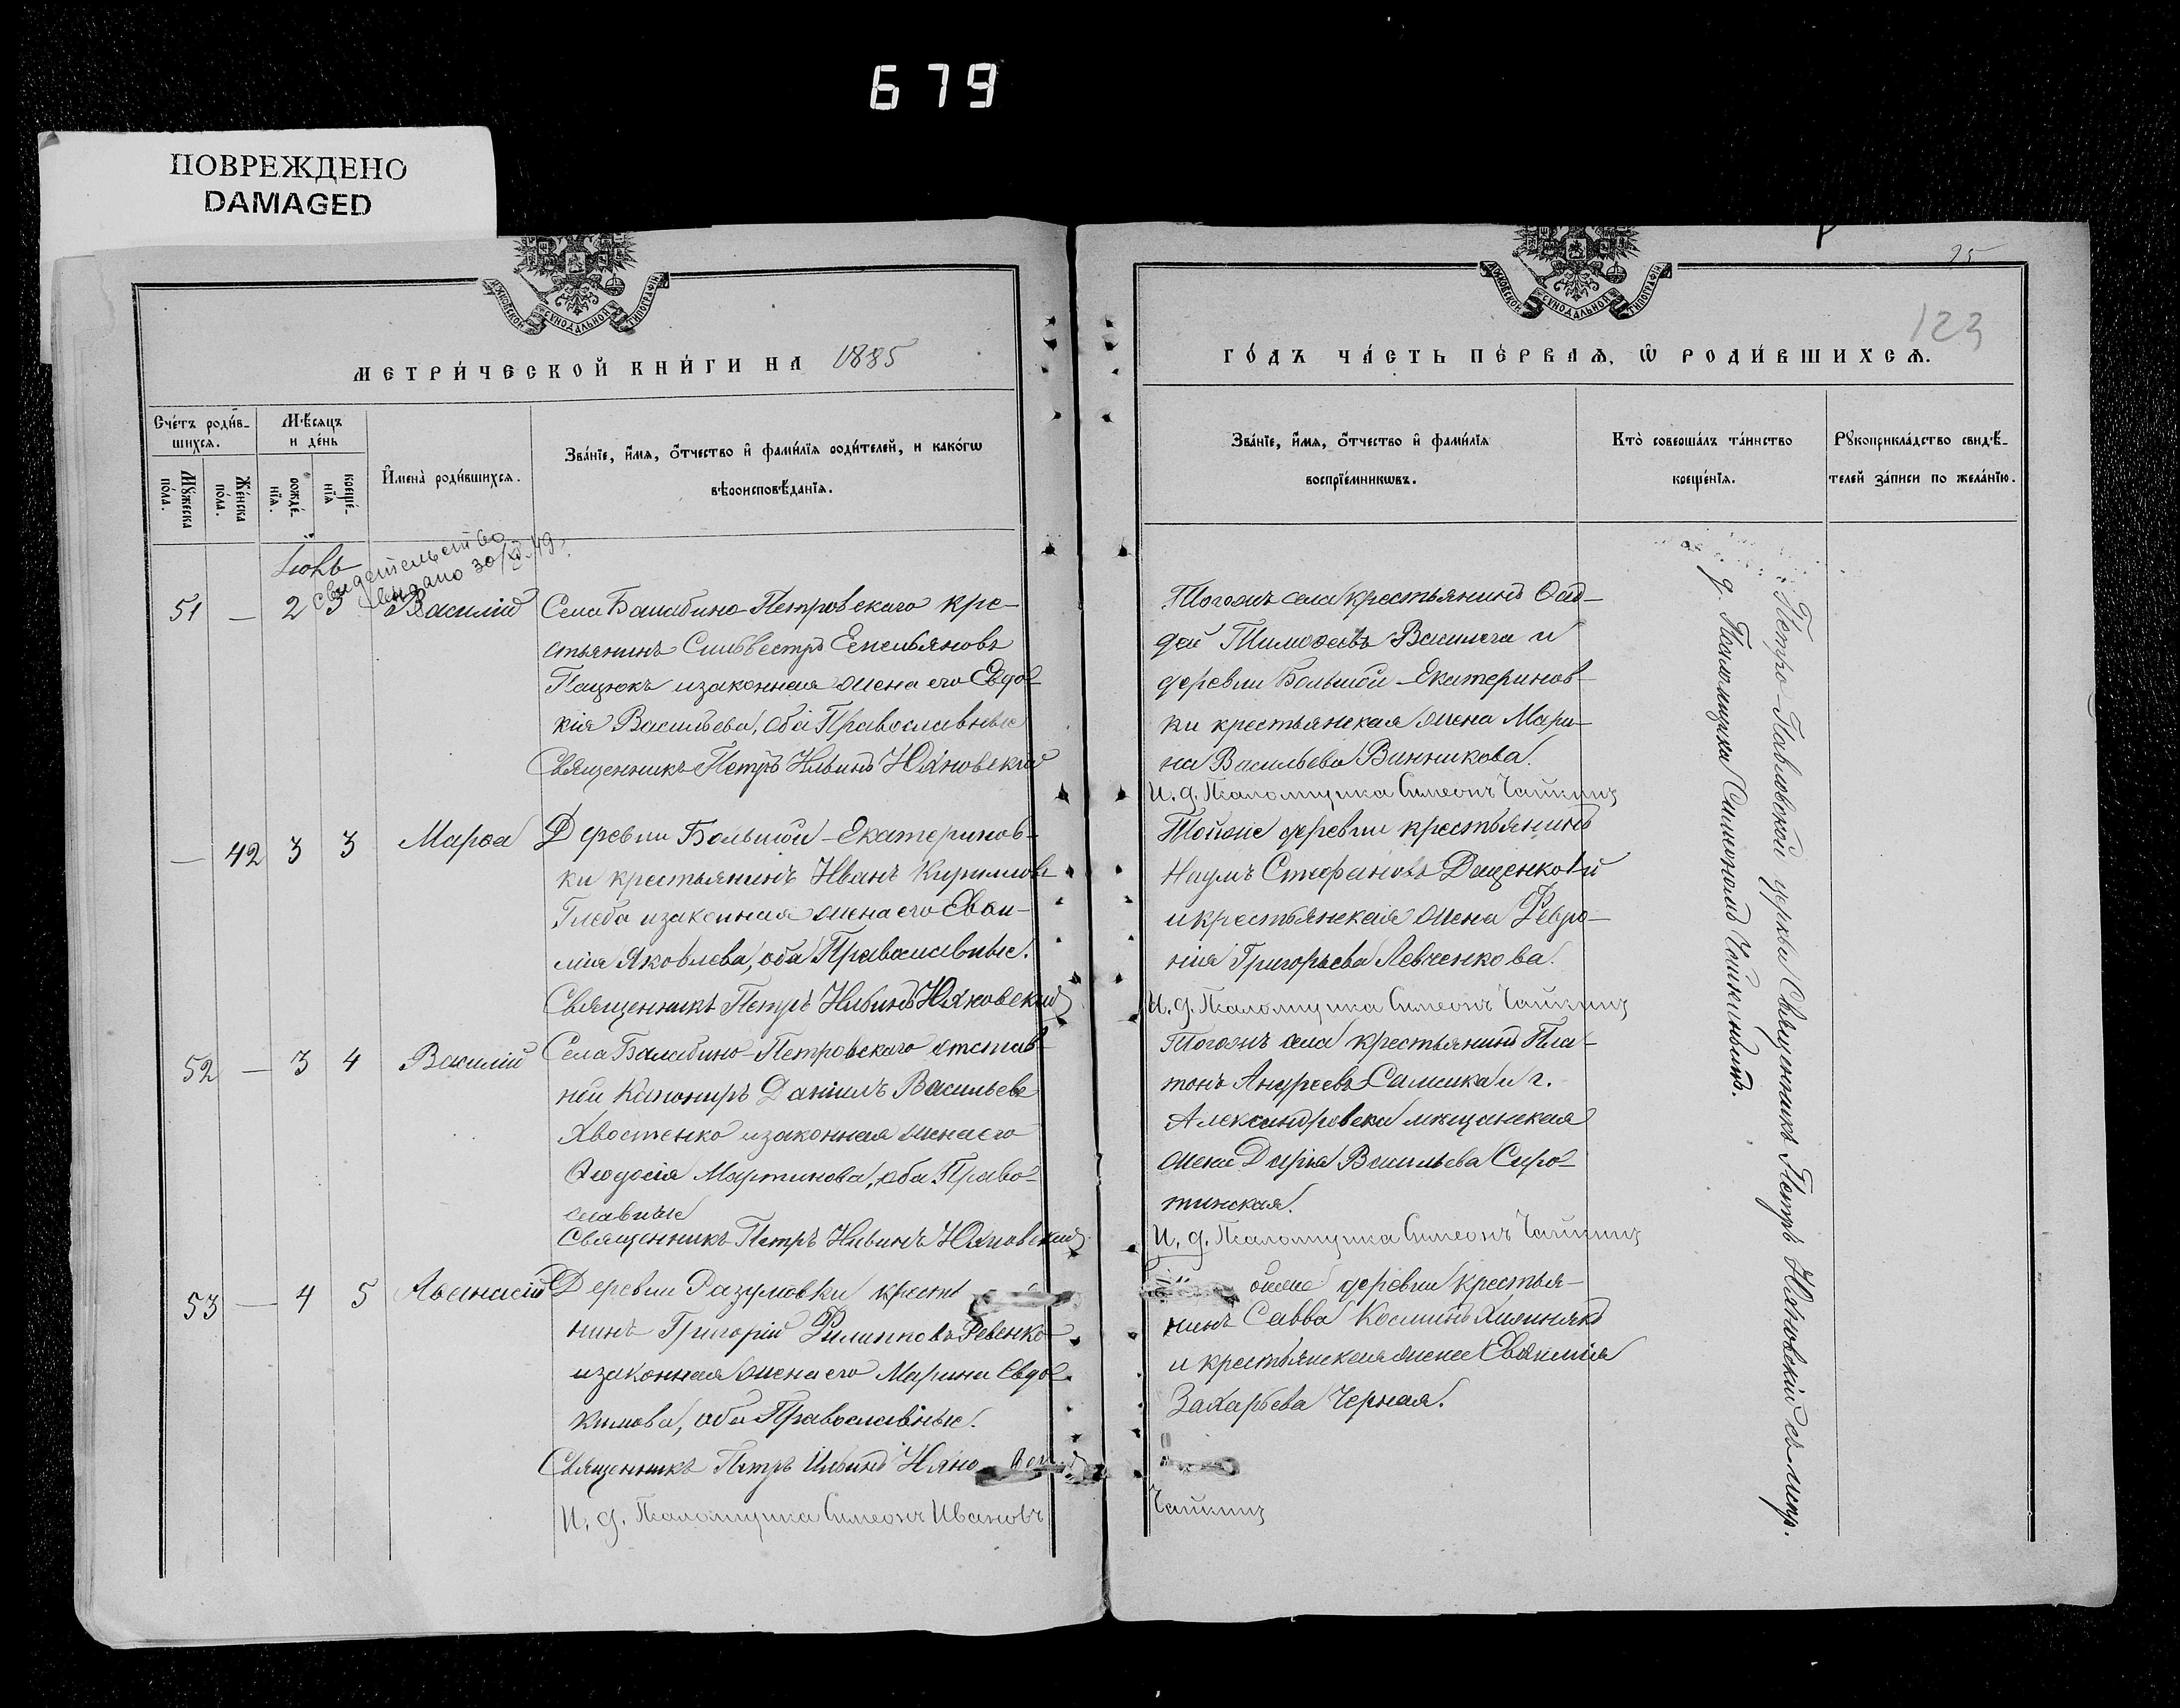 679
ПОВРЕЖДЕНО
DAMAGED
МЕТРИ́ЧЕСКОЙ КНИ́ГИ НА 1885
Сче́тъ роди́в-
шихсѧ.
Мꙋ́жеска
по́ла.
Же́нска
по́ла.
Мѣ́сѧцъ
и де́нь
рожде́-
нїѧ.
креще́-
нїѧ
И҆мена̀ роди́вшихсѧ.
Зва́нїе, и҆́мѧ, ѻ҆́тчество и҆ фами́лїѧ роди́телей, и како́гѡ
вѣроисповѣ́данїѧ.
Іюнь
свидетельство
выдано 30/XI 49.
51 — 2 3 Василій
Села Балабино-Петровскаго кре-
стьянинъ Сильвестръ Емельяновъ
Пацюкъ и законная жена его Евдо-
кія Васильева, оба Православные
Священникъ Петръ Ильинъ Юхновскій
— 42 3 3 Марѳа
Деревни Большой-Екатеринов-
ки крестьянинъ Иванъ Кирилловъ
Глеба и законная жена его Евѳи-
мія Яковлева, оба Православные.
Священникъ Петръ Ильинъ Юхновскій
52 — 3 4 Василій
Села Балабино-Петровскаго отстав-
ной Канониръ Даніилъ Васильевъ
Хвостенко и законная жена его
Ѳеодосія Мартинова, оба Право-
славные
Священникъ Петръ Ильинъ Юхновскій
53 — 4 5 Аѳанасій
Деревни Разумовки крестья
нинъ Григорій Филипповъ Ревенко
и законная жена его Марина Евдо-
кимова, оба Православные.
Священникъ Петръ Ильинъ
И. д. Псаломщика Симеонъ Ивановъ
25
123
ГО́ДЪ ЧА́СТЬ ПЕ́РВАѦ, Ѡ҆ РОДИ́ВШИХСѦ.
Зва́нїе, и҆́мѧ, ѻ҆́тчество и҆ фами́лїѧ
воспрїе́мникѡвъ.
Кто̀ соверша́лъ та́инство
креще́нїѧ.
Рꙋкоприкла́дство свидѣ́-
телей за́писи по жела́нїю.
Тогожъ села крестьянинъ Ѳад-
дей Тимоѳеевъ Василега и
деревни Большой-Екатеринов-
ки крестьянская жена Мари-
на Васильева Винникова.
И. д. Псаломщика Симеонъ Чайкинъ
Тойже деревни крестьянинъ
Наумъ Стефановъ Даценковъ и
и крестьянская жена Февро-
нія Григорьева Левченкова.
И. д. Псаломщика Симеонъ Чайкинъ
Тогожъ села крестьянинъ Пла-
тонъ Андреевъ и г.
Александровска мѣщанская
жена Дарія Васильева Сиро-
тинская.
И. д. Псаломщика Симеонъ Чайкинъ
ойже деревни крестья-
нинъ Савва Косминъ Хижнякъ
и крестьянская жена Евѳимія
Захарьева Черная.
Чайкинъ
Петро-Павловской церкви Священникъ Петръ Юхновскій съ и. д.
д. Псаломщика Симеономъ Чайкинымъ.